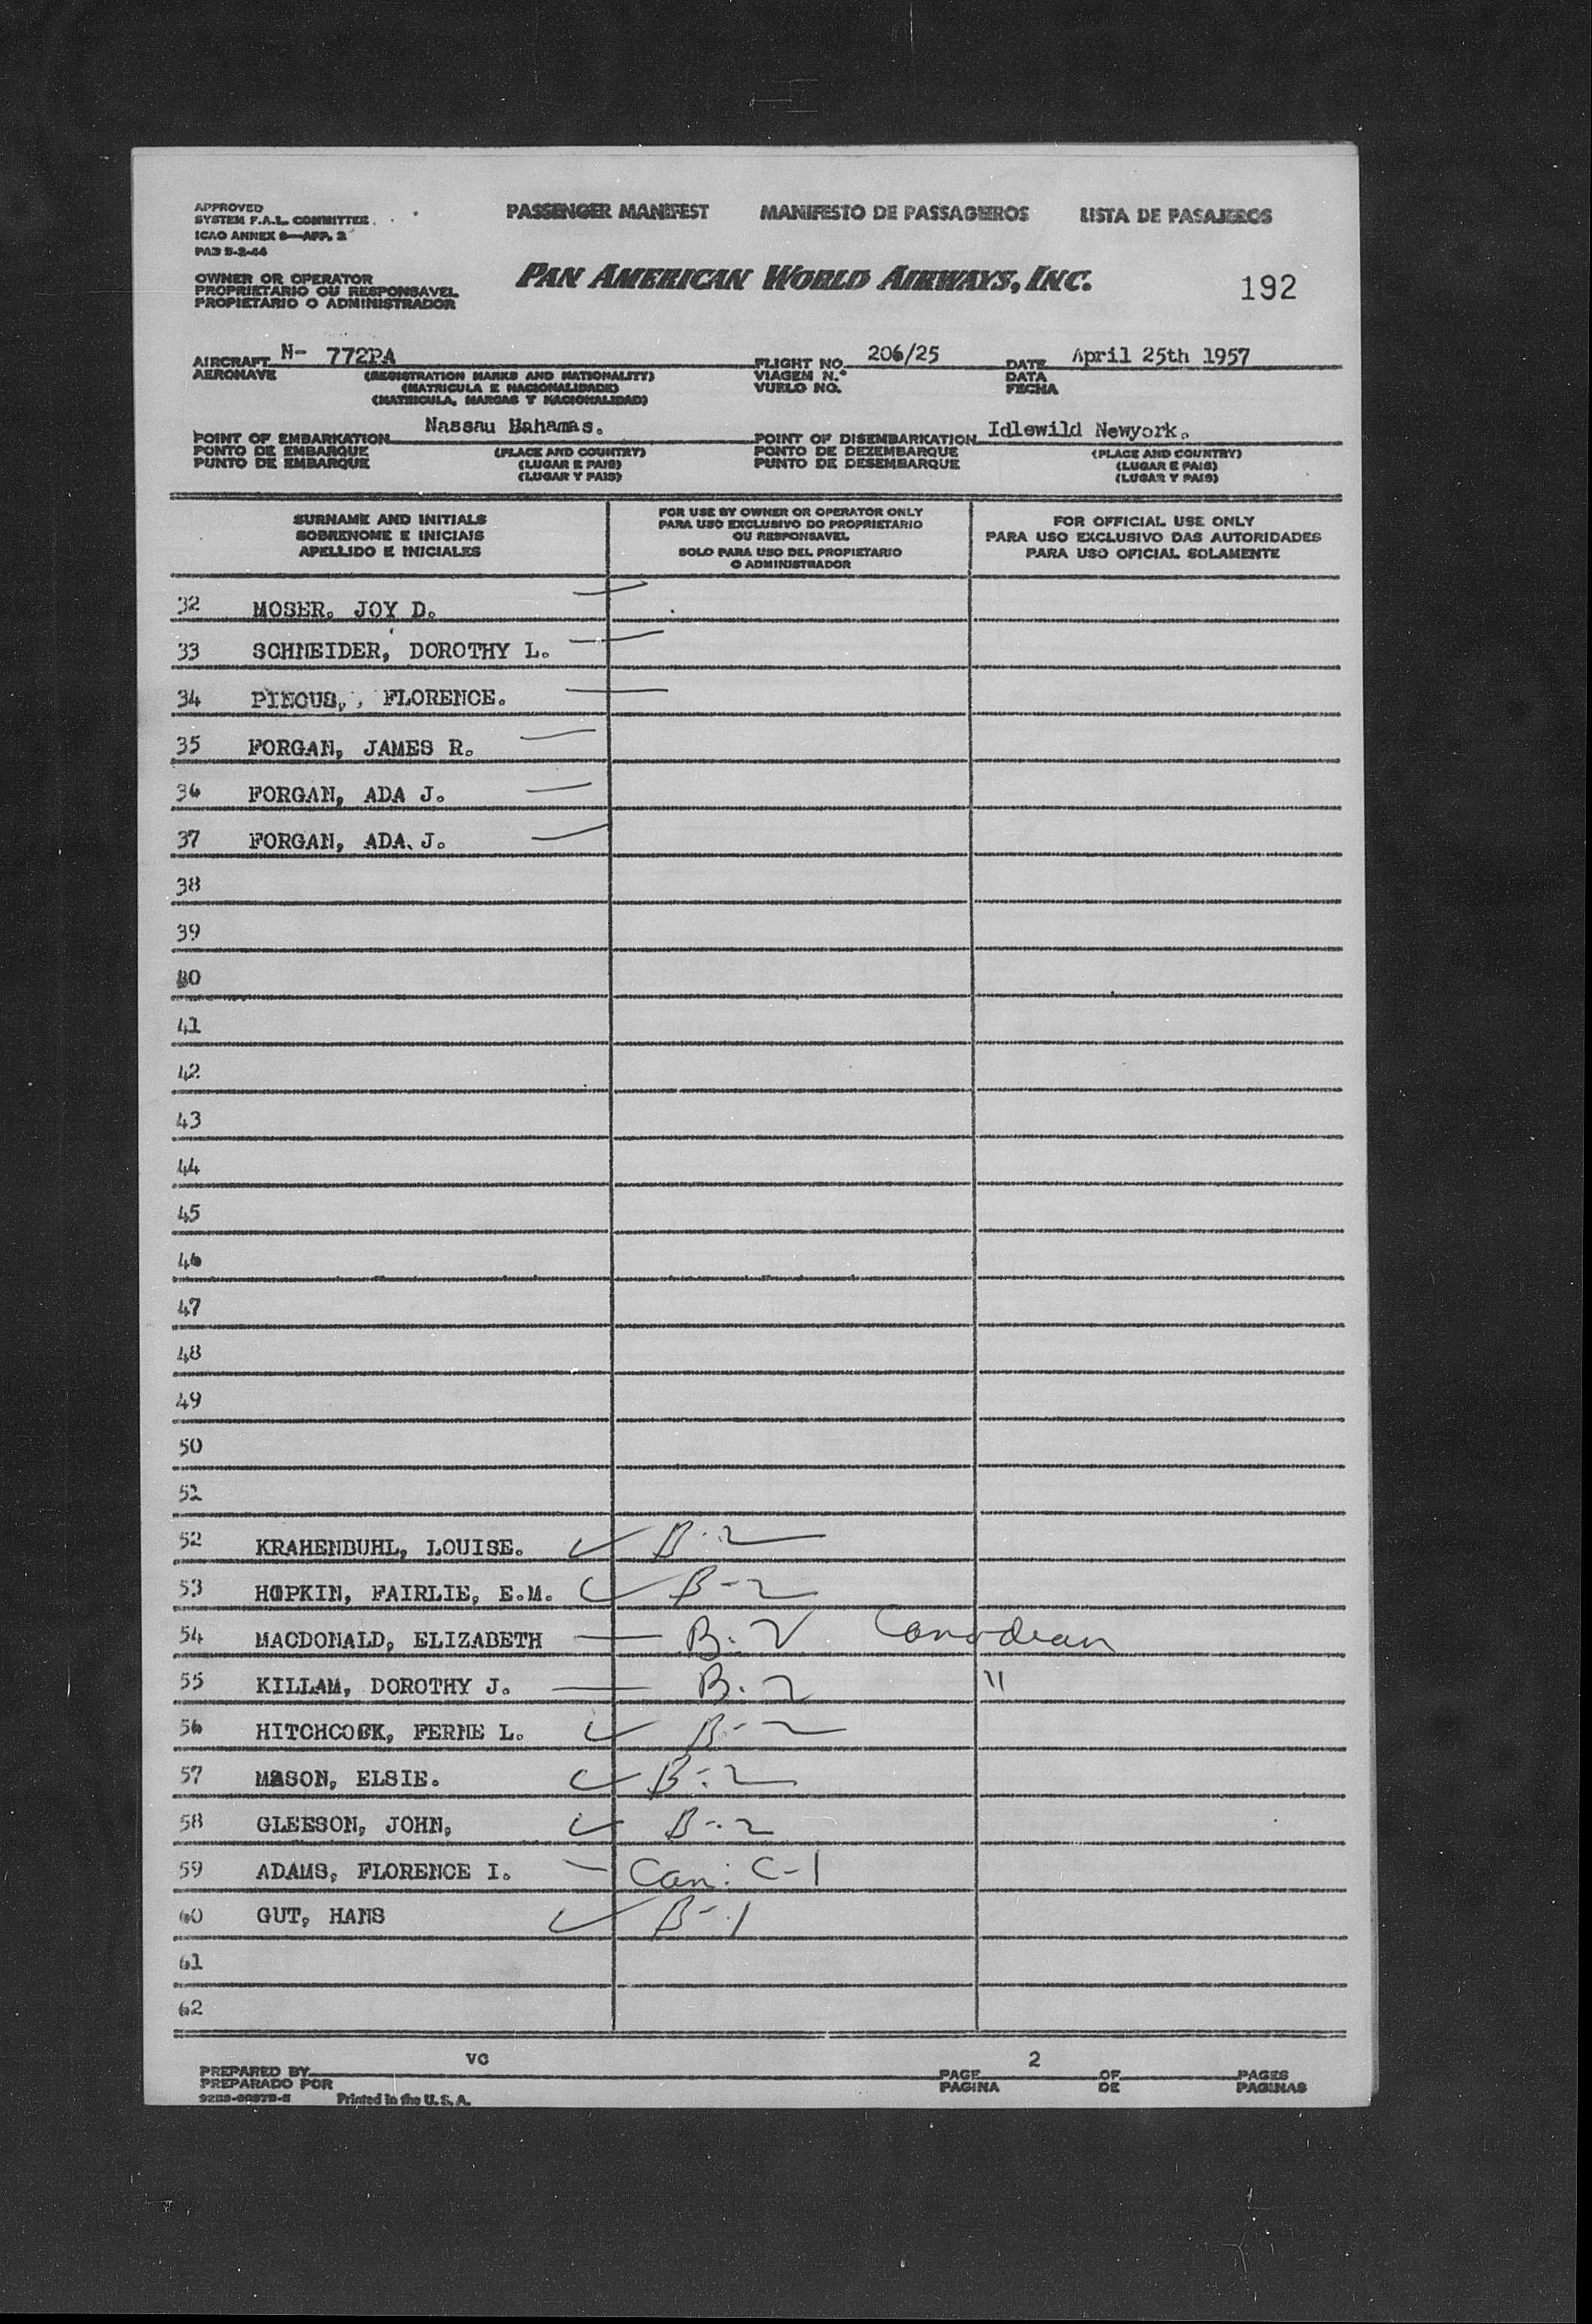 APPROVED
SYSTEM F.A.L. COMMITTEE
ICAO ANNEX 9—APP. 2
PAD 5-2-44
PASSENGER MANIFEST MANIFESTO DE PASSAGEIROS LISTA DE PASAJEROS
OWNER OR OPERATOR
PROPRIETARIO OU RESPONSAVEL
PROPIETARIO O ADMINISTRADOR
PAN AMERICAN WORLD AIRWAYS, INC.
192
AIRCRAFT N- 772PA FLIGHT NO. 206/25 DATE April 25th 1957
AERONAVE (REGISTRATION MARKS AND NATIONALITY) VIAGEM N.° DATA
(MATRICULA E NACIONALIDADE) VUELO NO. FECHA
(MATRICULA, MARCAS Y NACIONALIDAD)
POINT OF EMBARKATION Nassau Bahamas. POINT OF DISEMBARKATION Idlewild Newyork.
PONTO DE EMBARQUE (PLACE AND COUNTRY) PONTO DE DEZEMBARQUE (PLACE AND COUNTRY)
PUNTO DE EMBARQUE (LUGAR E PAIS) PUNTO DE DESEMBARQUE (LUGAR E PAIS)
(LUGAR Y PAIS) (LUGAR Y PAIS)
SURNAME AND INITIALS
SOBRENOME E INICIAIS
APELLIDO E INICIALES
FOR USE BY OWNER OR OPERATOR ONLY
PARA USO EXCLUSIVO DO PROPRIETARIO
OU RESPONSAVEL
SOLO PARA USO DEL PROPIETARIO
O ADMINISTRADOR
FOR OFFICIAL USE ONLY
PARA USO EXCLUSIVO DAS AUTORIDADES
PARA USO OFICIAL SOLAMENTE
32 MOSER. JOY D.
33 SCHNEIDER, DOROTHY L.
34 PINCUS,, FLORENCE.
35 FORGAN, JAMES R.
36 FORGAN, ADA J.
37 FORGAN, ADA J.
38
39
40
41
42
43
44
45
46
47
48
49
50
51
52 KRAHENBUHL, LOUISE. B-2
53 HOPKIN, FAIRLIE, E.M. B-2
54 MACDONALD, ELIZABETH B-2 Canadian
55 KILLAM, DOROTHY J. B-2 "
56 HITCHCOCK, FERNE L. B-2
57 MASON, ELSIE. B-2
58 GLEESON, JOHN, B-2
59 ADAMS, FLORENCE I. Can: C-1
60 GUT, HANS B-1
61
62
PREPARED BY VC PAGE 2 OF PAGES
PREPARADO POR PAGINA DE PAGINAS
Printed in the U. S. A.